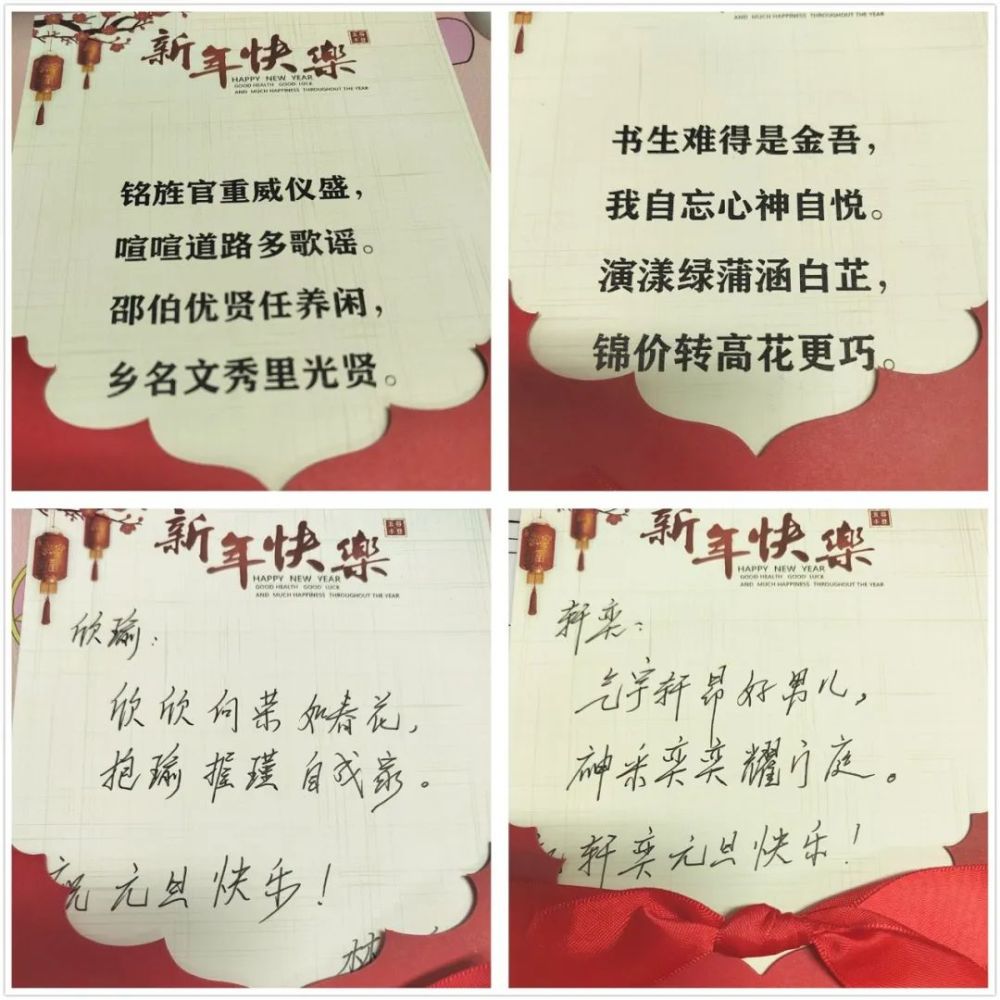 新年快樂
HAPPY NEW YEAR
GOOD HEALTH GOOD LUCK
AND MUCH HAPPINESS THROUGHOUT THE YEAR
铭旌官重威仪盛，
喧喧道路多歌谣。
邵伯优贤任养闲，
乡名文秀里光贤。
AND MUCH HAPPINESS THROUGHOUT THE YEAR
书生难得是金吾，
我自忘心神自悦。
演漾绿蒲涵白芷，
锦价转高花更巧。
新年快樂
HAPPY NEW YEAR
GOOD HEALTH GOOD LUCK
AND MUCH HAPPINESS THROUGHOUT THE YEAR
欣瑜：
欣欣向荣如春花，
抱瑜握瑾自成家。
祝元旦快乐！
林
新年快樂
HAPPY NEW YEAR
GOOD HEALTH GOOD LUCK
AND MUCH HAPPINESS THROUGHOUT THE YEAR
轩奕：
气宇轩昂好男儿，
神采奕奕耀门庭。
轩奕元旦快乐！